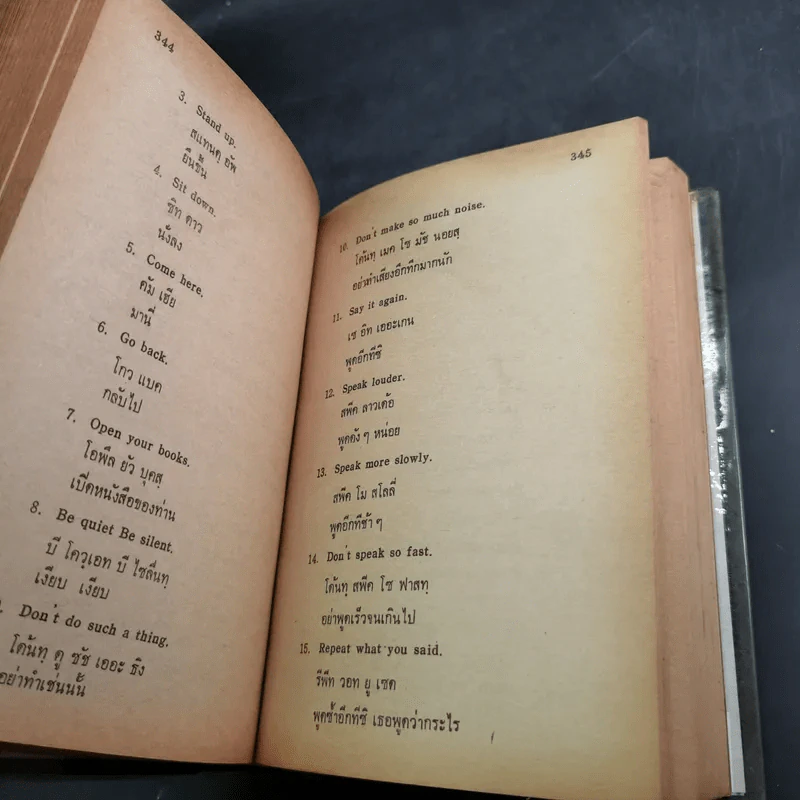 344
3. Stand up.
สแทนดฺ อัพ
ยืนขึ้น
4. Sit down.
ซิท ดาว
นั่งลง
5. Come here.
คัม เฮีย
มานี่
6. Go back.
โกว แบค
กลับไป
7. Open your books.
โอพึล ยัว บุคสฺ
เปิดหนังสือของท่าน
8. Be quiet Be silent.
บี ไควฺเอท บี ไซลึ่นทฺ
เงียบ เงียบ
Don't do such a thing.
โด้นทฺ ดู ซัช เออะ ธิง
อย่าทำเช่นนั้น
345
10. Don't make so much noise.
โด้นทฺ เมค โซ มัช นอยสฺ
อย่าทำเสียงอึกทึกมากนัก
11. Say it again.
เซ อิท เออะเกน
พูดอีกทีซิ
12. Speak louder.
สพีค ลาวเด้อ
พูดดัง ๆ หน่อย
13. Speak more slowly.
สพีค โม สโลลี่
พูดอีกทีช้า ๆ
14. Don't speak so fast.
โด้นทฺ สพีค โซ ฟาสทฺ
อย่าพูดเร็วจนเกินไป
15. Repeat what you said.
รีพีท วอท ยู เซด
พูดซ้ำอีกทีซิ เธอพูดว่ากระไร